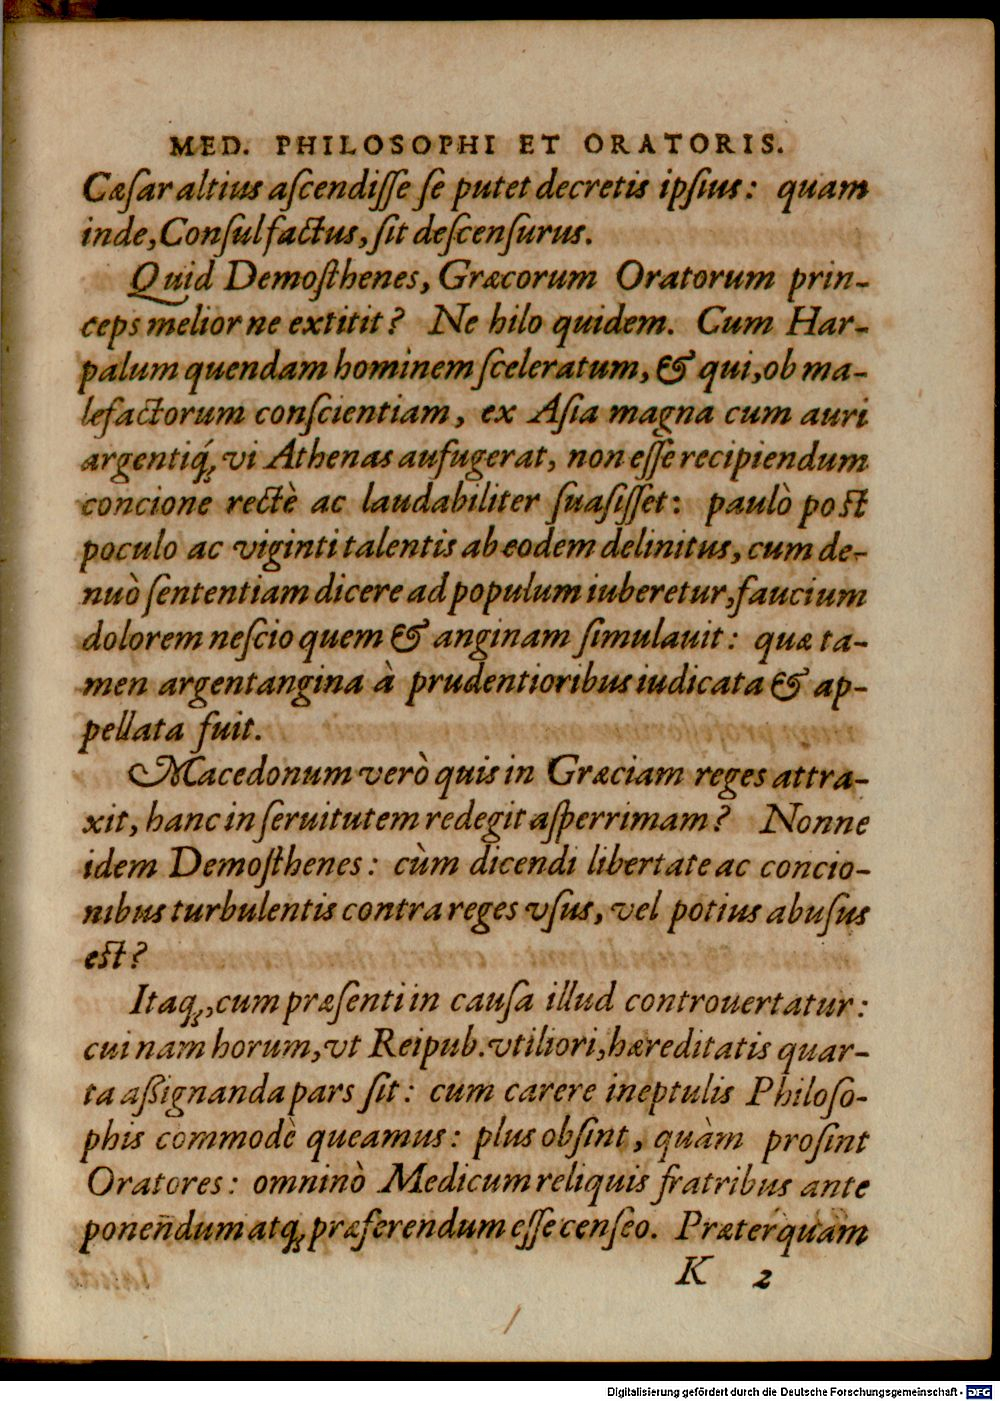 MED. PHILOSOPHI ET ORATORIS.
Cæſar altius aſcendiſſe ſe putet decretis ipſius: quam
inde, Conſul factus, ſit deſcenſurus.
Quid Demoſthenes, Græcorum Oratorum prin-
ceps melior ne extitit? Ne hilo quidem. Cum Har-
palum quendam hominem ſceleratum, & qui, ob ma-
lefactorum conſcientiam, ex Aſia magna cum auri
argentiq́; vi Athenas aufugerat, non eſſe recipiendum
concione rectè ac laudabiliter ſuaſiſſet: paulò poſt
poculo ac viginti talentis ab eodem delinitus, cum de-
nuò ſententiam dicere ad populum iuberetur, faucium
dolorem neſcio quem & anginam ſimulauit: quæ ta-
men argentangina à prudentioribus iudicata & ap-
pellata fuit.
Macedonum verò quis in Græciam reges attra-
xit, hanc in ſeruitutem redegit aſperrimam? Nonne
idem Demoſthenes: cùm dicendi libertate ac concio-
nibus turbulentis contra reges vſus, vel potius abuſus
eſt?
Itaq;, cum præſenti in cauſa illud controuertatur:
cui nam horum, vt Reipub. vtiliori, hæreditatis quar-
ta aßignanda pars ſit: cum carere ineptulis Philoſo-
phis commodè queamus: plus obſint, quàm proſint
Oratores: omninò Medicum reliquis fratribus ante
ponendum atq; præferendum eſſe cenſeo. Præterquam
K 2
Digitalisierung gefördert durch die Deutsche Forschungsgemeinschaft - DFG